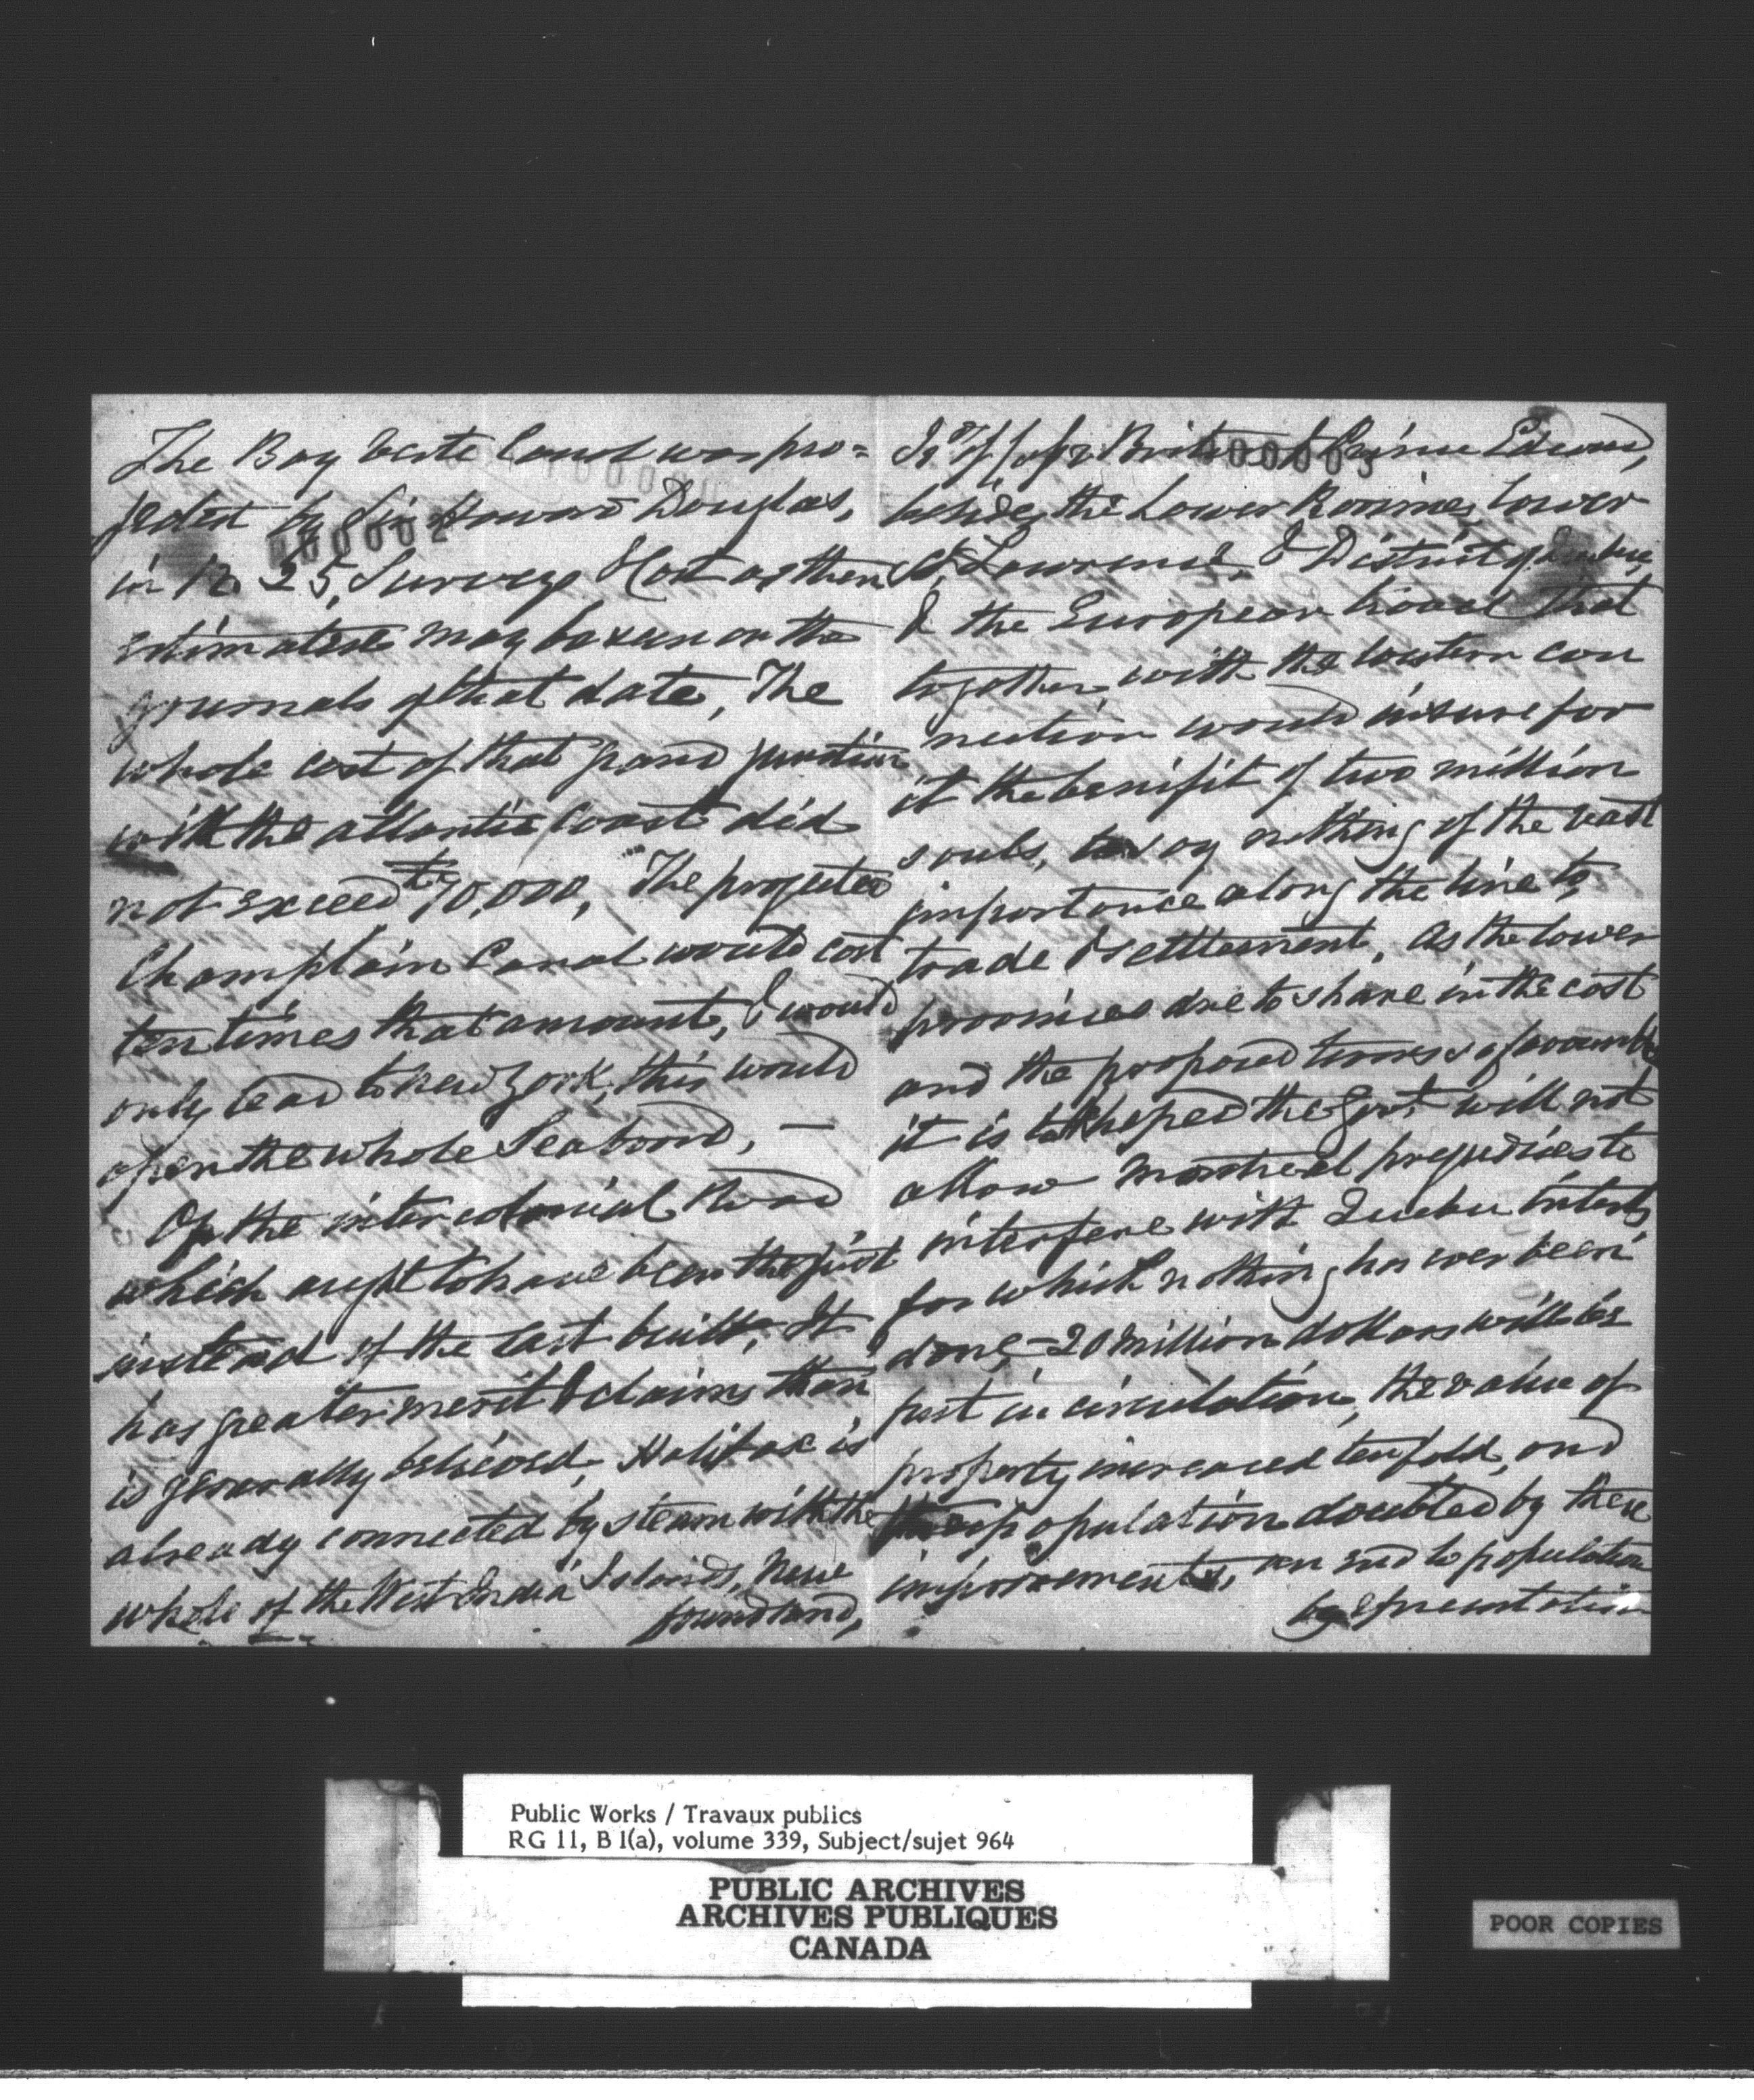 The Bay Verte Canal was pro=
jected by Sir Howard Douglas,
000002
in 1825, Survey & Cost as then
estimated may be seen on the
journals of that date, The
whole cost of that grand junction
with the atlantic Coast did
not exceed 70,000, The projected
Champlain Canal would cost
ten times that amount, & would
only lead to New York, this would
open the whole Seaboard, —
Of the intercolonial Road
which ought to have been the first
instead of the last built, It
has greater merit & claims than
is generally believed, Halifax is
already connected by steam with the
whole of the West India Islands, New
foundland,
Prince Edward,
beside, the Lower Provinces, lower
St Lawrence, & District of Quebec,
& the European travel that
together with the western con
nection would insure for
it the benifit of two million
souls, to say nothing of the vast
importance along the line to
trade & settlement, As the lower
provinces are to share in the cost
and the proposed terms so favourable
it is to be hoped the Govt will not
allow Montreal prejudices to
interfere with Quebec interests
for which nothing has ever been
done, – 20 million dollars will be
put in circulation, the value of
property increased tenfold, and
population doubled by these
improvements, an end to population
by representation
Public Works / Travaux publics
RG 11, B 1(a), volume 339, Subject/sujet 964
PUBLIC ARCHIVES
ARCHIVES PUBLIQUES
CANADA
POOR COPIES